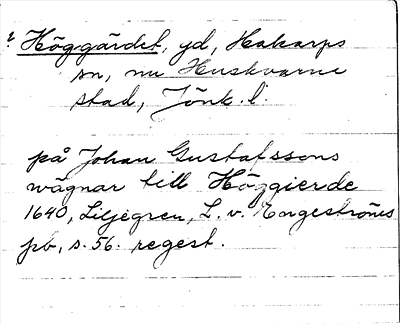 ? Höggärdet, yd, Hakarps
sn, nu Huskvarna
stad, Jönk. l.
på Johan Gustafssons
wägnar till Höggierde
1640, Liljegren, L. v. Engeströms
pb, s. 56. regest.